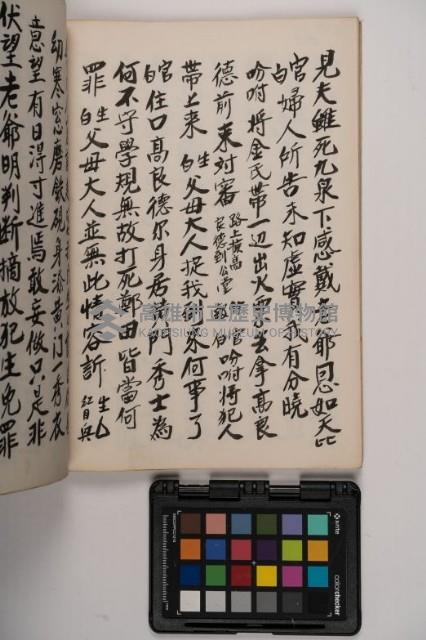 見夫雖死九泉下感戴老爺同恩如天比
官白婦人所告未知虛實我有分曉
吩咐將金氏帶一边出火票去拿高良
德前來対審 路上拔高良德到公堂 官白吩咐將犯人
帶上來 生白父母大人捉我到來何事了
官白住口高良德尔身居黄門秀士為
何不守學規無故打死鄭田皆當何
罪 生白父母大人並無此情容訴 生乜
幼寒窓磨鉄硯身添黄门一秀友
意望有日得寸進焉敢妄做只是非
伏望老爺明判断摘放犯生免罪
高雄市立歷史博物館
KAOHSIUNG MUSEUM OF HISTORY
x-rite
colorchecker